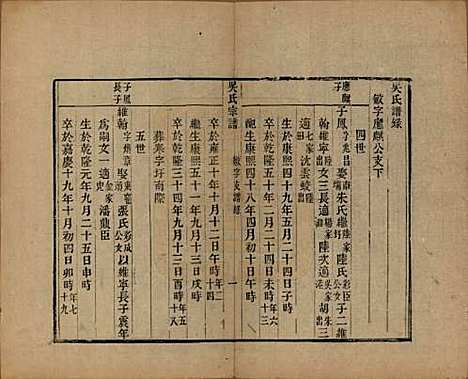 吳氏譜錄
敏字應麒公支下
四世
應麒子 鳳 字兆昌 娶 朱氏 繼 陸氏 彩臣公女 子二 維
翰 維寧 女三 長適 陸 次適 吳 胡 出 三
適 沈雲蛟
生於康熙四十九年五月二十四日子時
卒於乾隆二十一年四月二十四日未時 年六十三
配生康熙四十八年四月初十日午時
吳氏宗譜
敏字支譜錄
一
卒於雍正十年十月十二日午時 年二十四
繼生康熙五十一年九月十三日戌時
卒於乾隆三十四年九月十三日酉時 年五十八
葬寒字圩南陸
五世
子鳳長子 維翰 字 章 娶 張氏 彩成公女 以維寧長子震年
為嗣 女一 適 潘鼎臣
生於乾隆元年九月二十五日申時
卒於嘉慶十九年十月初四日卯時 年七十九